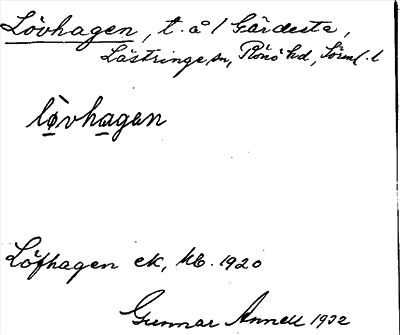 Lövhagen, t. å / Gärdesta,
Lästringe sn, Rönö hd, Sörml. l
lòvhagen
Löfhagen ek, kb. 1920
Gunnar Annell 1932